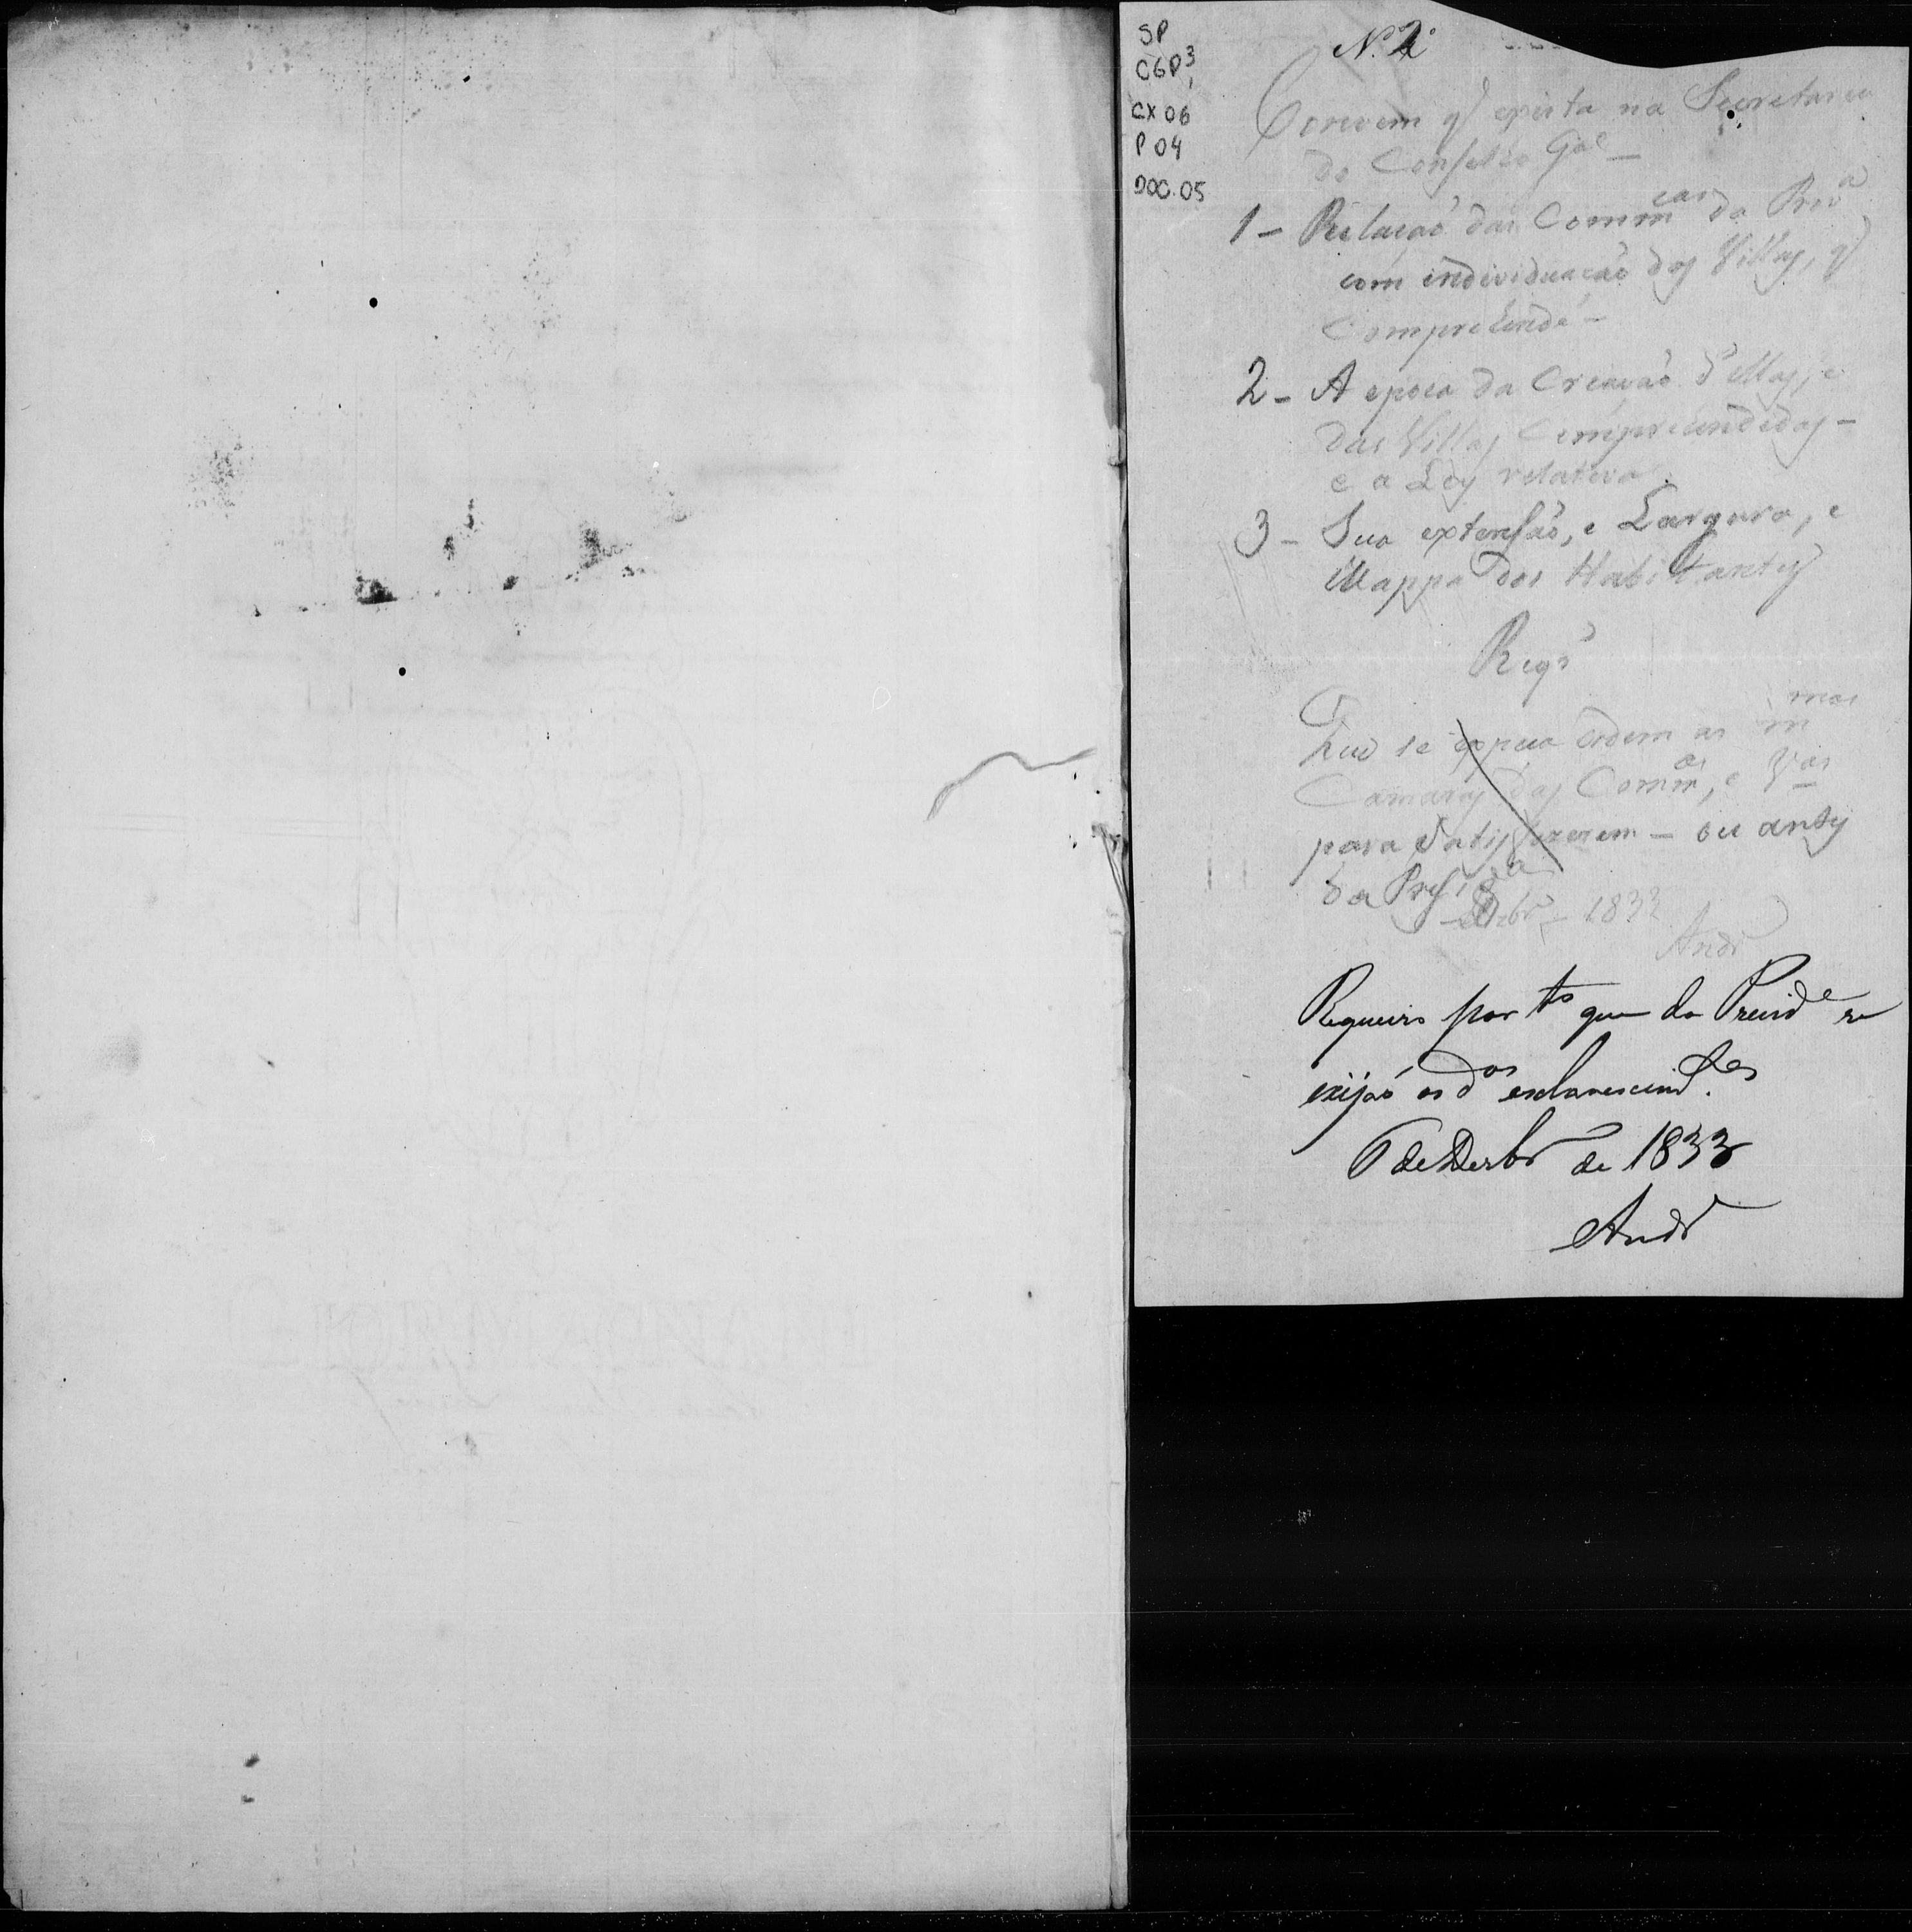 SP
CGP3,
CX 06
P 04
DOC. 05
N. 2º
Convem q exista na Secretaria
do Conselho Gal
1 - Relação das Commcas da Prova
com individuação das Villas, q
Comprehende -
2 - A epoca da Creação d'ellas, e
das Villas Comprehendidas -
e a Ley relativa
3 - Sua extensão, e Largura, e
Mappa dos Habitantes
Reqro
Que se expeça ordem as mmas
Camaras das Commas, e Vas
para satisfazerem - ou antes
da Presida
Dezbr 1833
Andr
Requeiro por tto que da Preside se
exijaõ os dos esclarescimtes.
6 de Dezbr de 1833
Andr